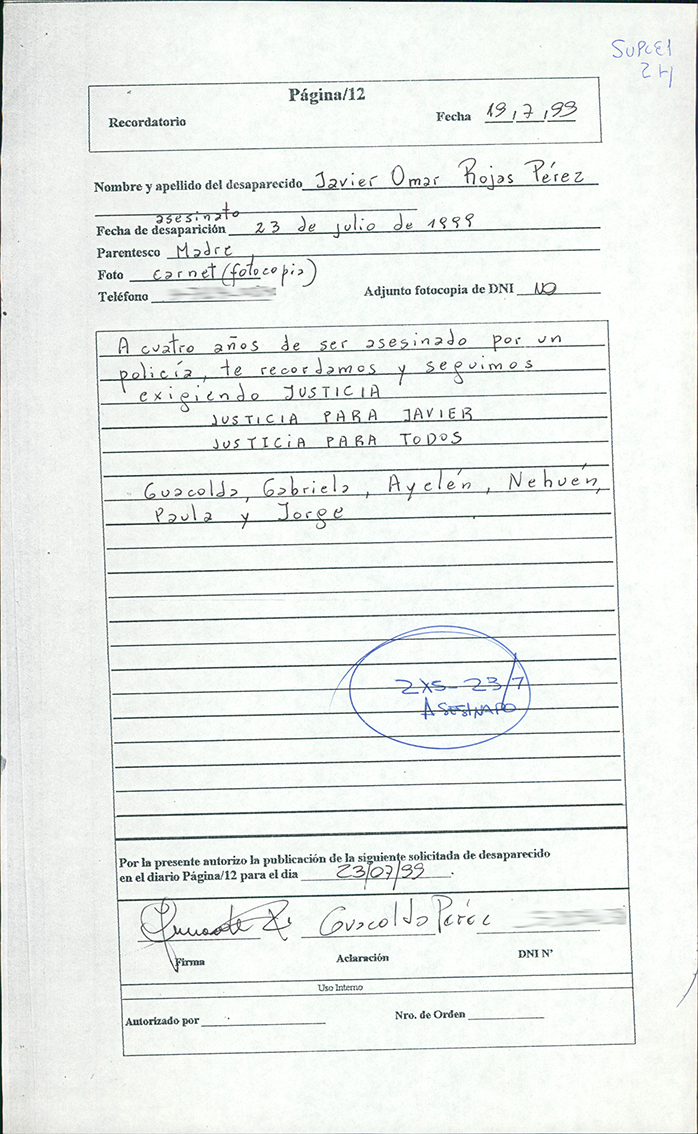 SUPLE1
24
Página/12
Recordatorio
Fecha 19,7,99
Nombre y apellido del desaparecido Javier Omar Rojas Pérez
asesinato
Fecha de desaparición 23 de julio de 1999
Parentesco Madre
Foto carnet (fotocopia)
Teléfono
Adjunto fotocopia de DNI NO
A cuatro años de ser asesinado por un
policía, te recordamos y seguimos
exigiendo JUSTICIA
JUSTICIA PARA JAVIER
JUSTICIA PARA TODOS
Guacolda, Gabriela, Ayelén, Nehuén,
Paula y Jorge
2x5- 23/7
ASESINADO
Por la presente autorizo la publicación de la siguiente solicitada de desaparecido
en el diario Página/12 para el dia 23/07/99.
Guacolda Peréz
Firma
Aclaración
DNI Nº
Uso Interno
Autorizado por
Nro. de Orden